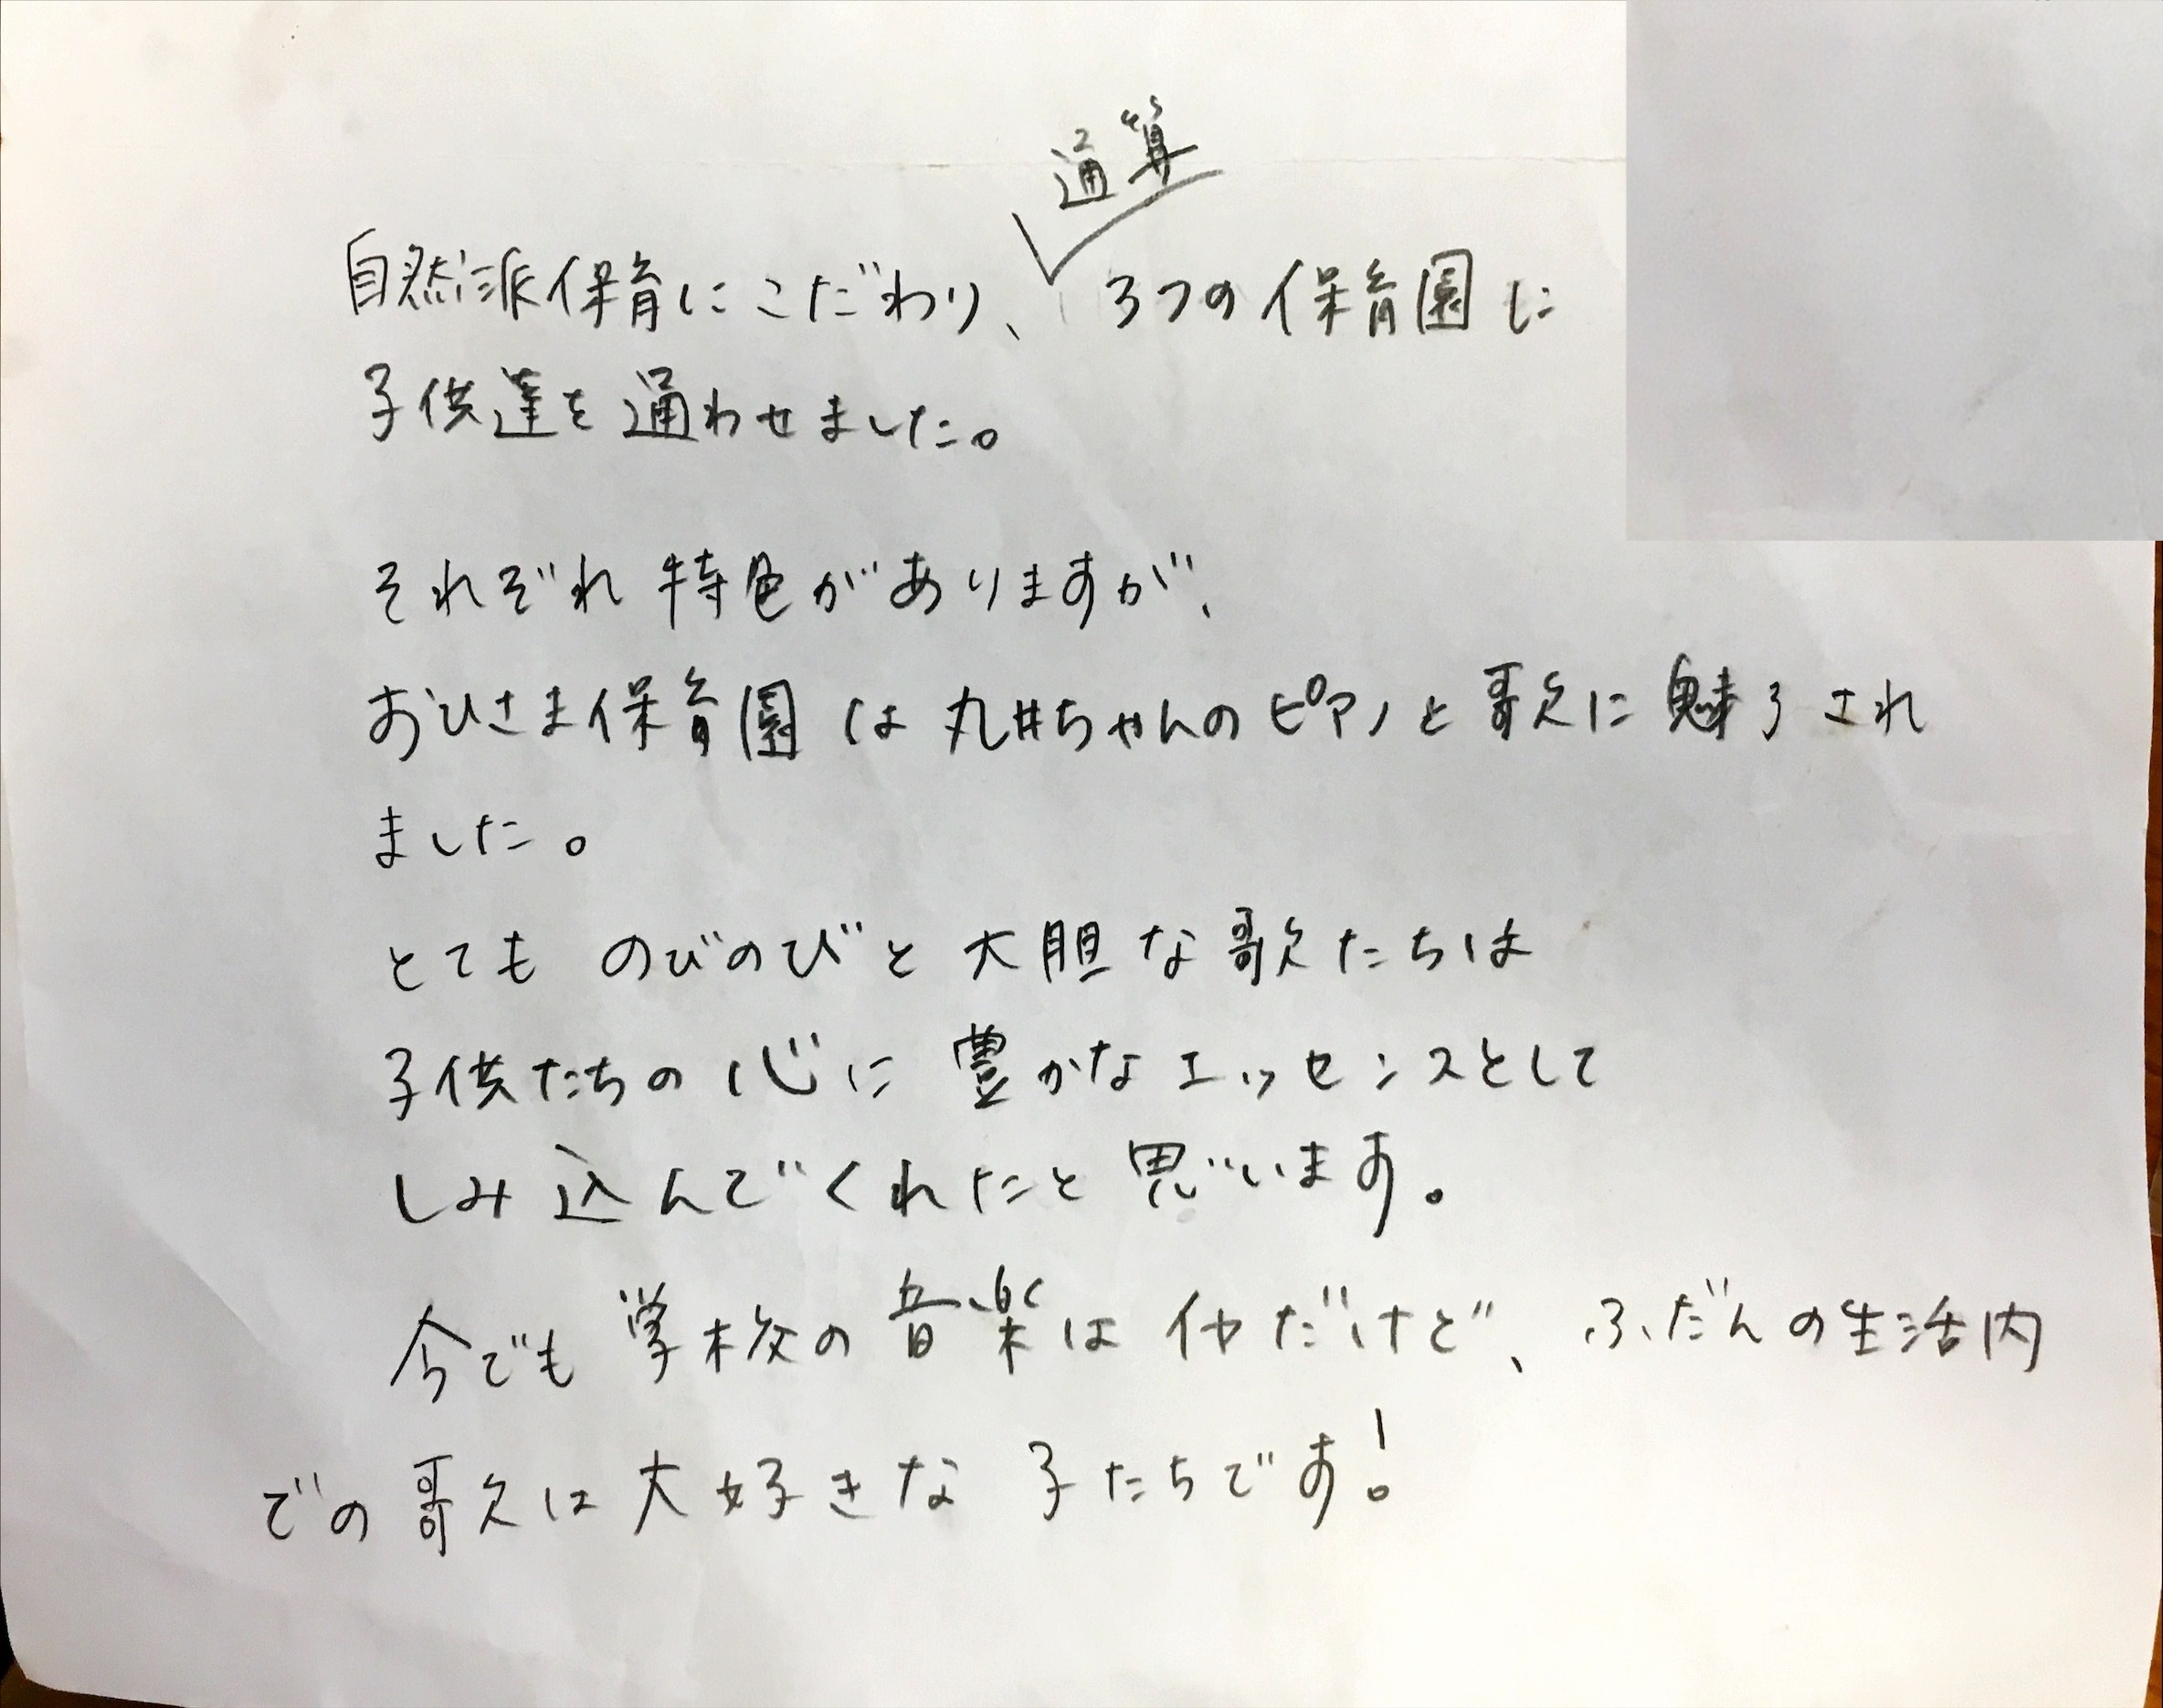 通算
自然派保育にこだわり、3つの保育園に
子供達を通わせました。
それぞれ特色がありますが、
おひさま保育園は丸井ちゃんのピアノと歌に魅了され
ました。
とても のびのびと大胆な歌たちは
子供たちの心に豊かなエッセンスとして
しみ込んでくれたと思います。
今でも学校の音楽はイヤだけど、ふだんの生活内
での歌は大好きな子たちです!